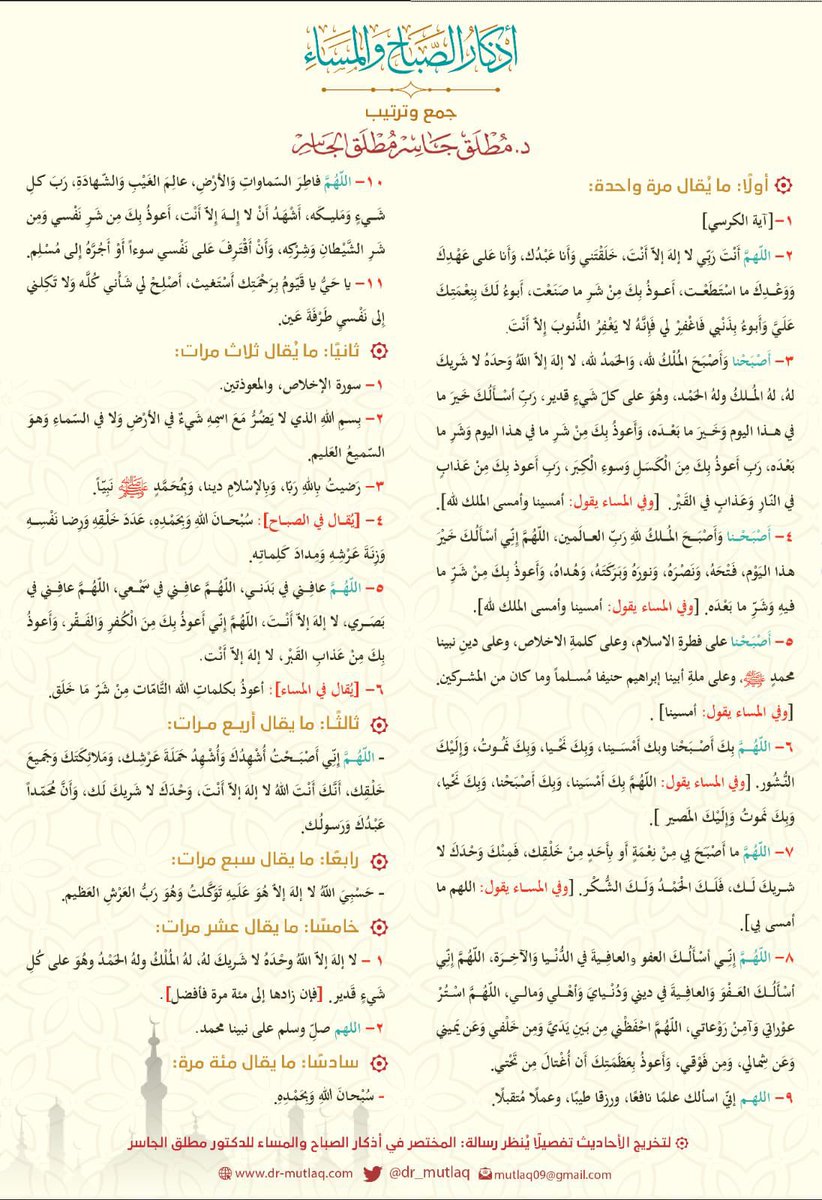 أذكار الصَّباح والمَساءِ
جمع وترتيب
د. مُطلَق جَاسِر مُطلَق الجَاسِر
أولًا: ما يُقال مرة واحدة:
١- [آية الكرسي]
٢- اللّهمَّ أَنْتَ رَبِّي لا إلهَ إلاّ أَنْتَ، خَلَقْتَني وَأَنا عَبْدُك، وَأَنا عَلى عَهْدِكَ
وَوَعْدِكَ ما اسْتَطَعْت، أَعـوذُ بِكَ مِنْ شَرِ ما صَنَعْت، أَبوءُ لَكَ بِنِعْمَتِكَ
عَلَيَّ وَأَبوءُ بِذَنْبي فَاغْفِرْ لي فَإِنَّهُ لا يَغْفِرُ الذُّنوبَ إِلاّ أَنْتَ.
٣- أَصْبَحْنا وَأَصْبَحَ الْمُلْكُ لله، وَالحَمدُ لله، لا إلهَ إلاّ اللّهُ وَحدَهُ لا شَريكَ
لهُ، لهُ المُـلكُ ولهُ الحَمْـد، وهُوَ على كلّ شَيءٍ قدير، رَبِّ أسْـأَلُـكَ خَيرَ ما
في هـذا اليوم وَخَـيرَ ما بَعْـدَه، وَأَعوذُ بِكَ مِنْ شَرِ ما في هـذا اليوم وَشَرِ ما
بَعْـدَه، رَبِ أَعوذُ بِكَ مِنَ الْكَسَلِ وَسوءِ الْكِبَر، رَبِ أَعوذ بِكَ مِنْ عَذابٍ
في النّارِ وَعَذابٍ في القَبْر. [وفي المساء يقول: أمسينا وأمسى الملك لله].
٤- أَصْبَحْـنا وَأَصْبَـحَ المُـلكُ للهِ رَبِّ العـالَمين، اللّهُمَّ إِنّي أسْأَلُـكَ خَيْرَ
هذا اليَوْم، فَتْحَهُ، وَنَصْرَهُ، وَنورَهُ وَبَرَكَتَهُ، وَهُداهُ، وَأَعوذُ بِكَ مِنْ شَرِّ ما
فيهِ وَشَرِّ ما بَعْدَه. [وفي المساء يقول: أمسينا وأمسى الملك لله].
٥- أَصْبَحْنا على فطرةِ الاسلام، وعلى كلمةِ الاخلاص، وعلى دينِ نبينا
محمدٍ ﷺ، وعلى ملةِ أبينا إبراهيم حنيفا مُسـلماً وما كان من المشـركين.
[وفي المساء يقول: أمسينا] .
٦- اللّهُـمَّ بِكَ أَصْـبَحْنا وبك أَمْسَـينا، وَبِكَ نَحْـيا، وَبِكَ نَمُـوتُ، وَإِلَيْكَ
النُّشُور. [وفي المساء يقول: اللّهُمَّ بِكَ أَمْسَينا، وَبِكَ أَصْبَحْنا، وَبِكَ نَحْيا،
وَبِكَ نَموتُ وَإِلَيْكَ المَصير ].
٧- اللّهُـمَّ ما أَصْبَـحَ بي مِـنْ نِعْمَةٍ أَو بِأَحَدٍ مِـنْ خَلْقِك، فَمِنْكَ وَحْدَكَ لا
شـريكَ لَـك، فَلَـكَ الْحَمْـدُ وَلَـكَ الشُّكْـر. [وفي المسـاء يقول: اللهم ما
أمسى بي].
٨- اللّهُـمَّ إِنّـي أسْأَلُـكَ العفو والعافِـيةَ في الدُّنْـيا وَالآخِـرَة، اللّهُـمَّ إِنِّي
أسْأَلُـكَ العَـفْوَ وَالعافِـيةَ في ديني وَدُنْـيايَ وَأهْـلي وَمالـي، اللّهُـمَّ اسْـتُرْ
عوْراتي وَآمِنْ رَوْعاتي، اللّهُمَّ احْفَظْني مِن بَينِ يَدَيَّ وَمِن خَلْفي وَعَن يَميني
وَعَن شِمالي، وَمِن فَوْقي، وَأَعوذُ بِعَظَمَتِكَ أَن أُغْتالَ مِن تَحْتي.
٩- اللهـم إنّي اسالك علمًا نافعًا، ورزقا طيبًا، وعملًا مُتقبلًا.
١٠- اللّهُمَّ فاطِرَ السّماواتِ وَالأرْضِ، عالِمَ الغَيْبِ وَالشّـهادَةِ، رَبَ كلِ
شَـيءٍ وَمَليـكَه، أَشْهَدُ أَنْ لا إِلـهَ إِلاّ أَنْت، أَعوذُ بِكَ مِن شَرِ نَفْسي وَمِن
شَرِ الشَّيْطانِ وَشِرْكِه، وَأَنْ أَقْتَرِفَ عَلى نَفْسي سوءاً أَوْ أَجُرَّهُ إِلى مُسْـلِم.
١١- يا حَيُّ يا قَيّومُ بِرَحْمَتِك أَسْتَغيث، أَصْلِحْ لي شَأْني كُلَّه وَلا تَكِلني
إِلى نَفْسي طَرْفَةَ عَين.
ثانيًا: ما يُقال ثلاث مرات:
١- سورة الإخلاص، والمعوذتين.
٢- بِسمِ اللهِ الذي لا يَضُرُّ مَعَ اسمِهِ شَيءٌ في الأرْضِ وَلا في السّماءِ وَهوَ
السّميعُ العَليم.
٣- رَضيتُ بِاللهِ رَبًا، وَبِالإسْلامِ دينا، وَبِمُحَمَّدٍ ﷺ نَبِيّاً.
٤- [يُقـال في الصبـاح]: سُبْحـانَ اللهِ وَبِحَمْدِه، عَدَدَ خَلْقِهِ وَرِضا نَفْسِـهِ
وَزِنَةَ عَرْشِهِ وَمِدادَ كَلِماتِه.
٥- اللّهُـمَّ عافِـني في بَدَني، اللّهُمَّ عافِـني في سَمْـعي، اللّهُـمَّ عافِـني في
بَصَـري، لا إلهَ إلاّ أَنْـتَ، اللّهُمَّ إِنّي أَعوذُ بِكَ مِنَ الْكُفرِ وَالفَـقْر، وَأَعوذُ
بِكَ مِنْ عَذابِ القَبْر، لا إلهَ إلاّ أَنْت.
٦- [يُقال في المساء]: أعوذُ بكلماتِ الله التَّامّات مِنْ شَرّ مَا خَلَق.
ثالثًا: ما يقال أربع مرات:
- اللّهُـمَّ إِنِّي أَصْبَـحْتُ أُشْهِدُكَ وَأُشْهِدُ حَمَلَةَ عَرْشِـك، وَمَلائكَتَكَ وَجَميعَ
خَلْقِك، أَنَّـكَ أَنْتَ اللهُ لا إلهَ إلاّ أَنْتَ، وَحْدَكَ لا شَريكَ لَك، وَأَنَّ مُحَمّداً
عَبْدُكَ وَرَسولُك.
رابعًا: ما يقال سبع مرات:
- حَسْبِيَ اللّهُ لا إلهَ إلاّ هُوَ عَلَيهِ تَوَكَّلتُ وَهُوَ رَبُّ العَرْشِ العَظيم.
خامسًا: ما يقال عشر مرات:
١ - لا إلهَ إلاّ اللّهُ وحْدَهُ لا شَريكَ لهُ، لهُ المُلْكُ ولهُ الحَمْدُ وهُوَ على كُلِ
شَيءٍ قَدير. [فإن زادها إلى مئة مرة فأفضل].
٢- اللهم صلِّ وسلم على نبينا محمد.
سادسًا: ما يقال مئة مرة:
- سُبْحانَ اللهِ وَبِحَمْدِهِ.
لتخريج الأحاديث تفصيلًا يُنظر رسالة: المختصر في أذكار الصباح والمساء للدكتور مطلق الجاسر
www.dr-mutlaq.com @dr_mutlaq mutlaq09@gmail.com